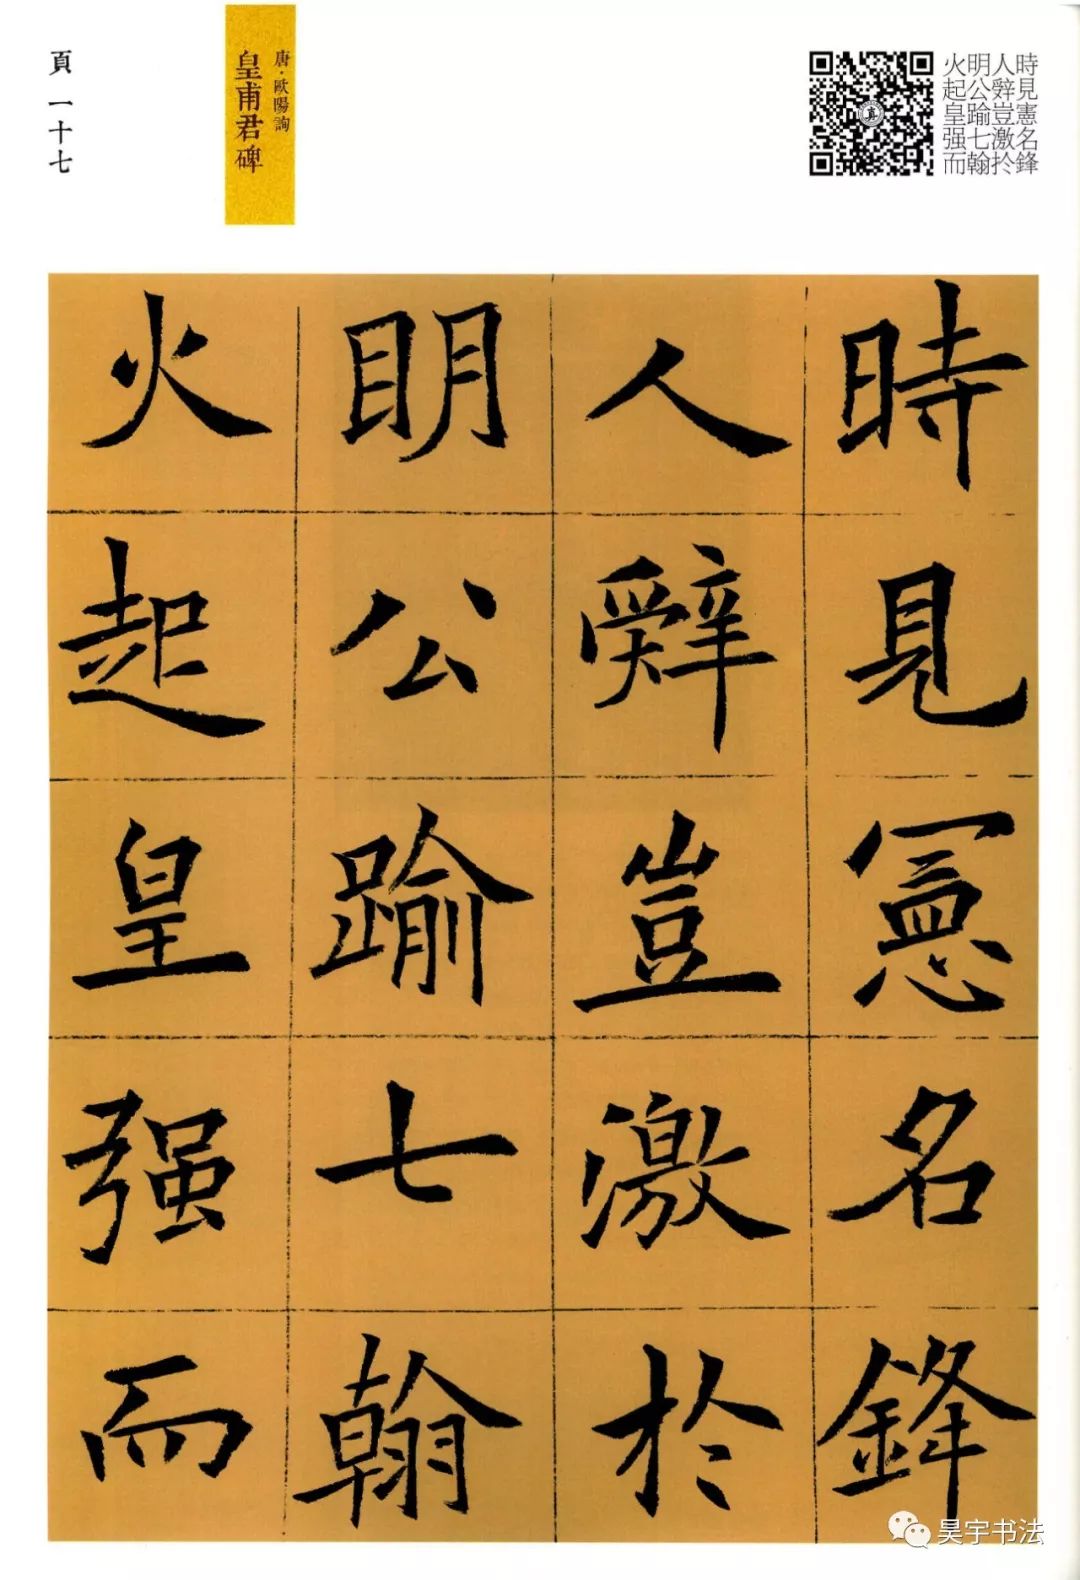 時見憲名鋒
人辤豈激扵
明公踰七翰
火起皇强而
唐·歐陽詢
皇甫君碑
頁一十七
時見憲名鋒
人辤豈激於
明公踰七翰
火起皇强而
昊宇书法